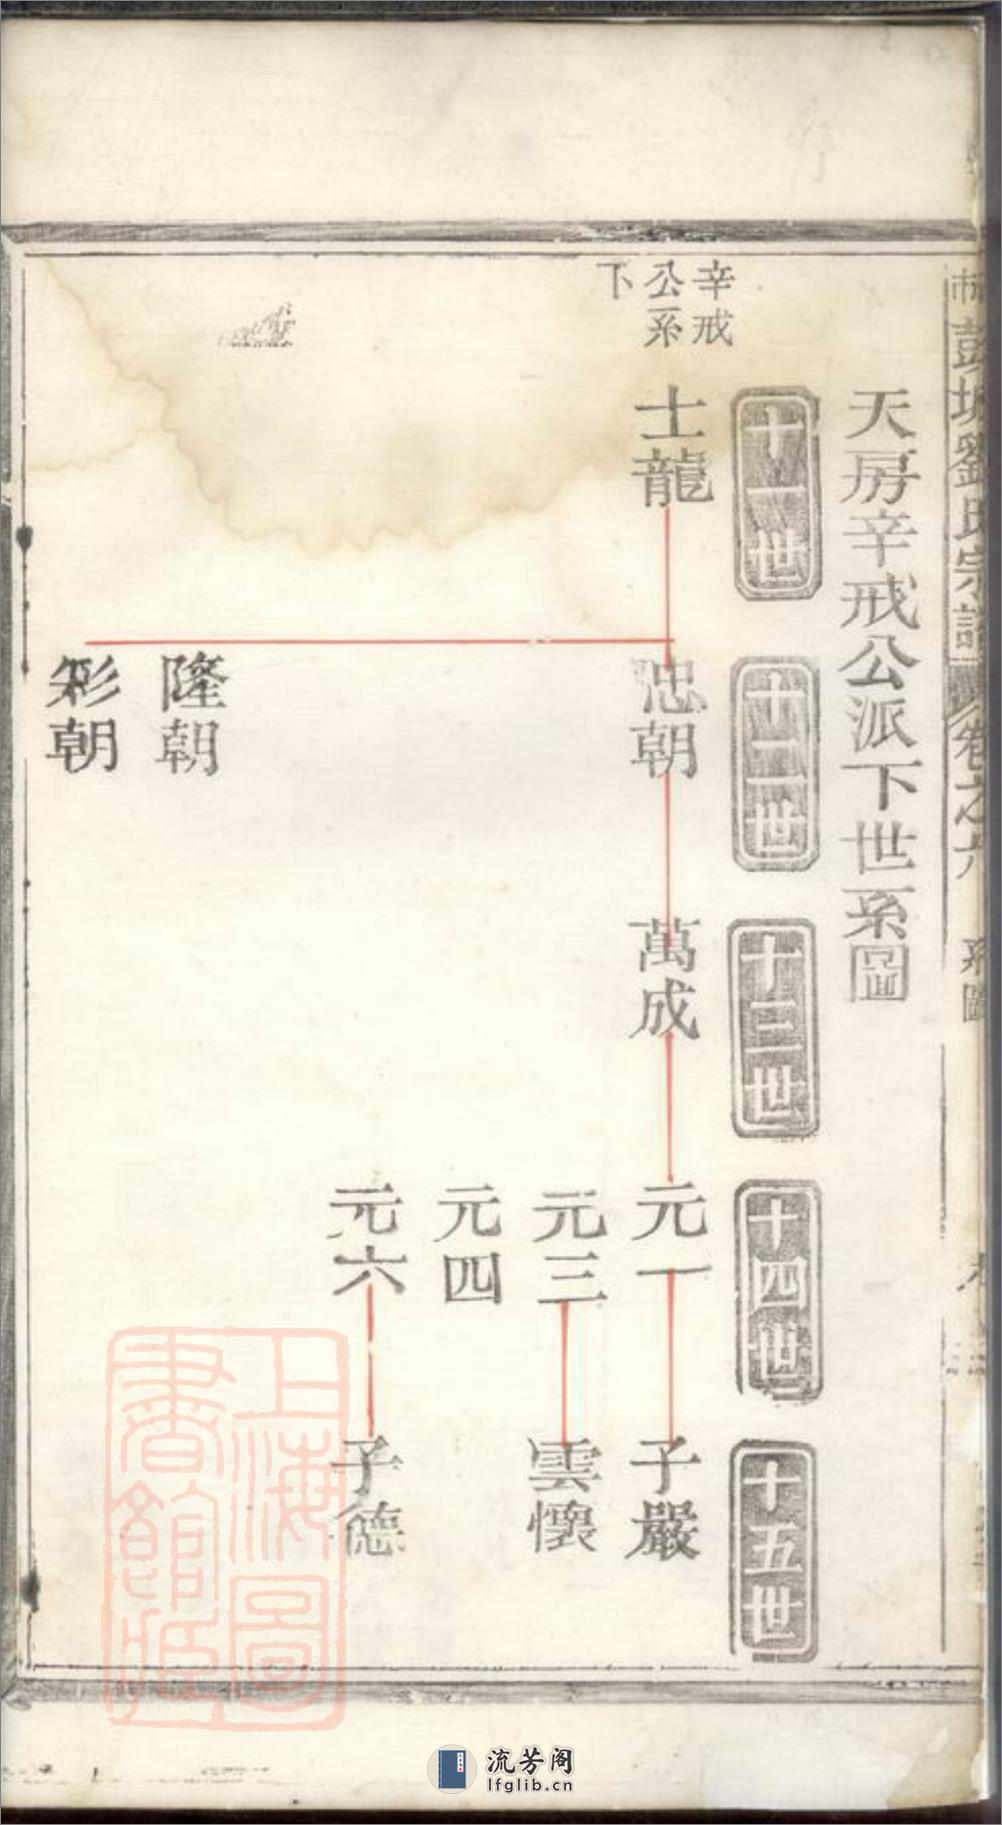 彭城劉氏宗譜
卷之六
系圖
天房辛戒公派下世系圖
十一世
十二世
十三世
十四世
十五世
辛戒
公系
下
士龍
忠朝
隆朝
彩朝
萬成
元一
元三
元四
元六
子嚴
雲懷
子德
上海圖
書館藏
流芳阁
lfglib.cn